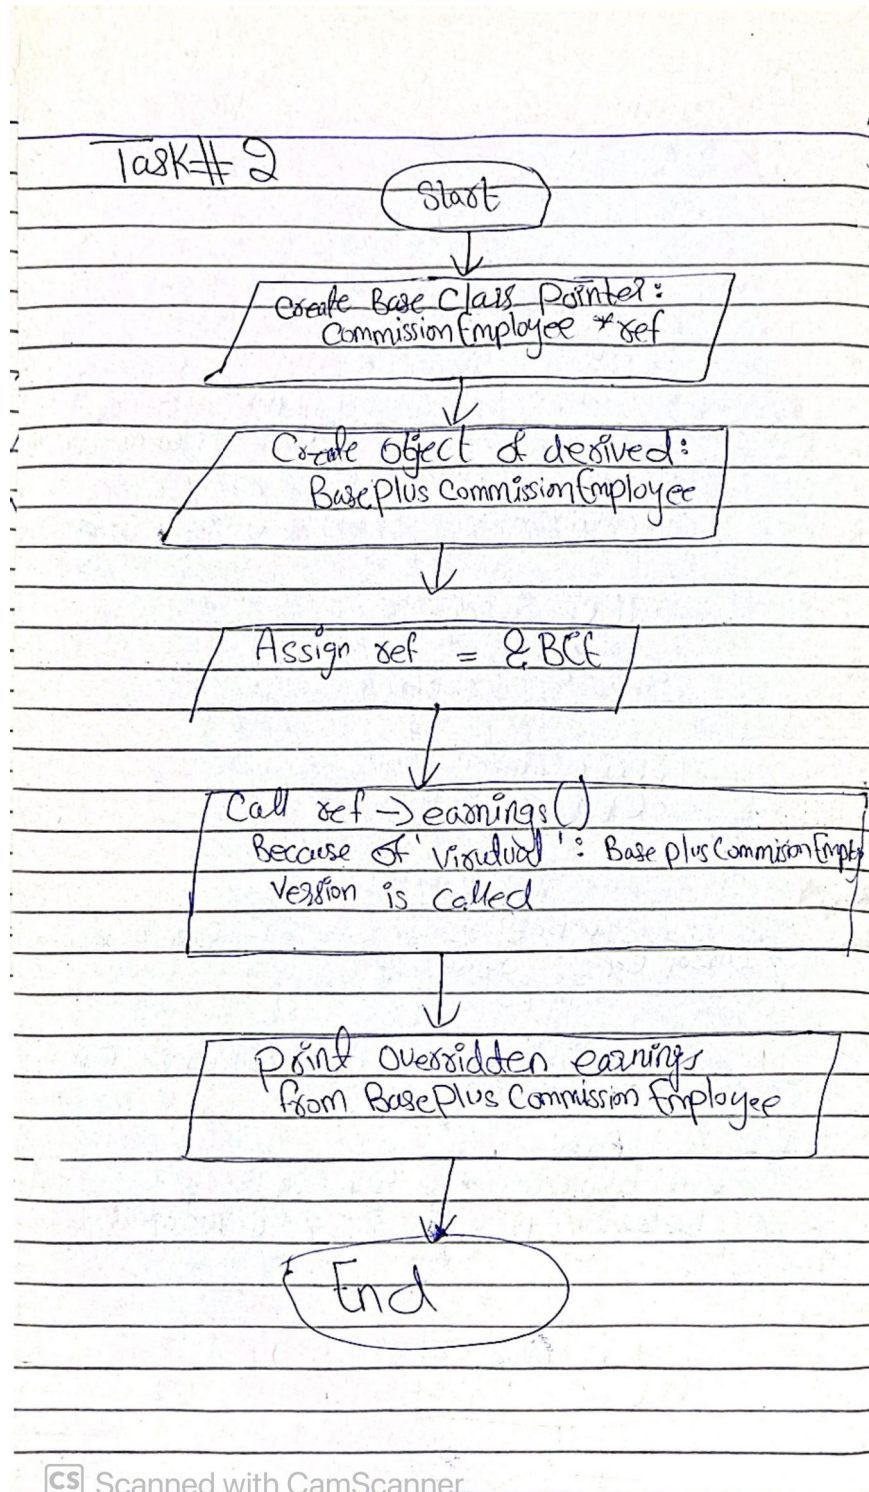 Task# 2
Start
Create Base Class Pointer:
CommissionEmployee *ref
Create object of derived:
BasePlus CommissionEmployee
Assign ref = & BCE
Call ref → earnings()
Because of 'Virutual': Base plus Commision Employ
Version is Called
Print overridden earnings
from BasePlus Commission Employee
End
CS Scanned with CamScanner